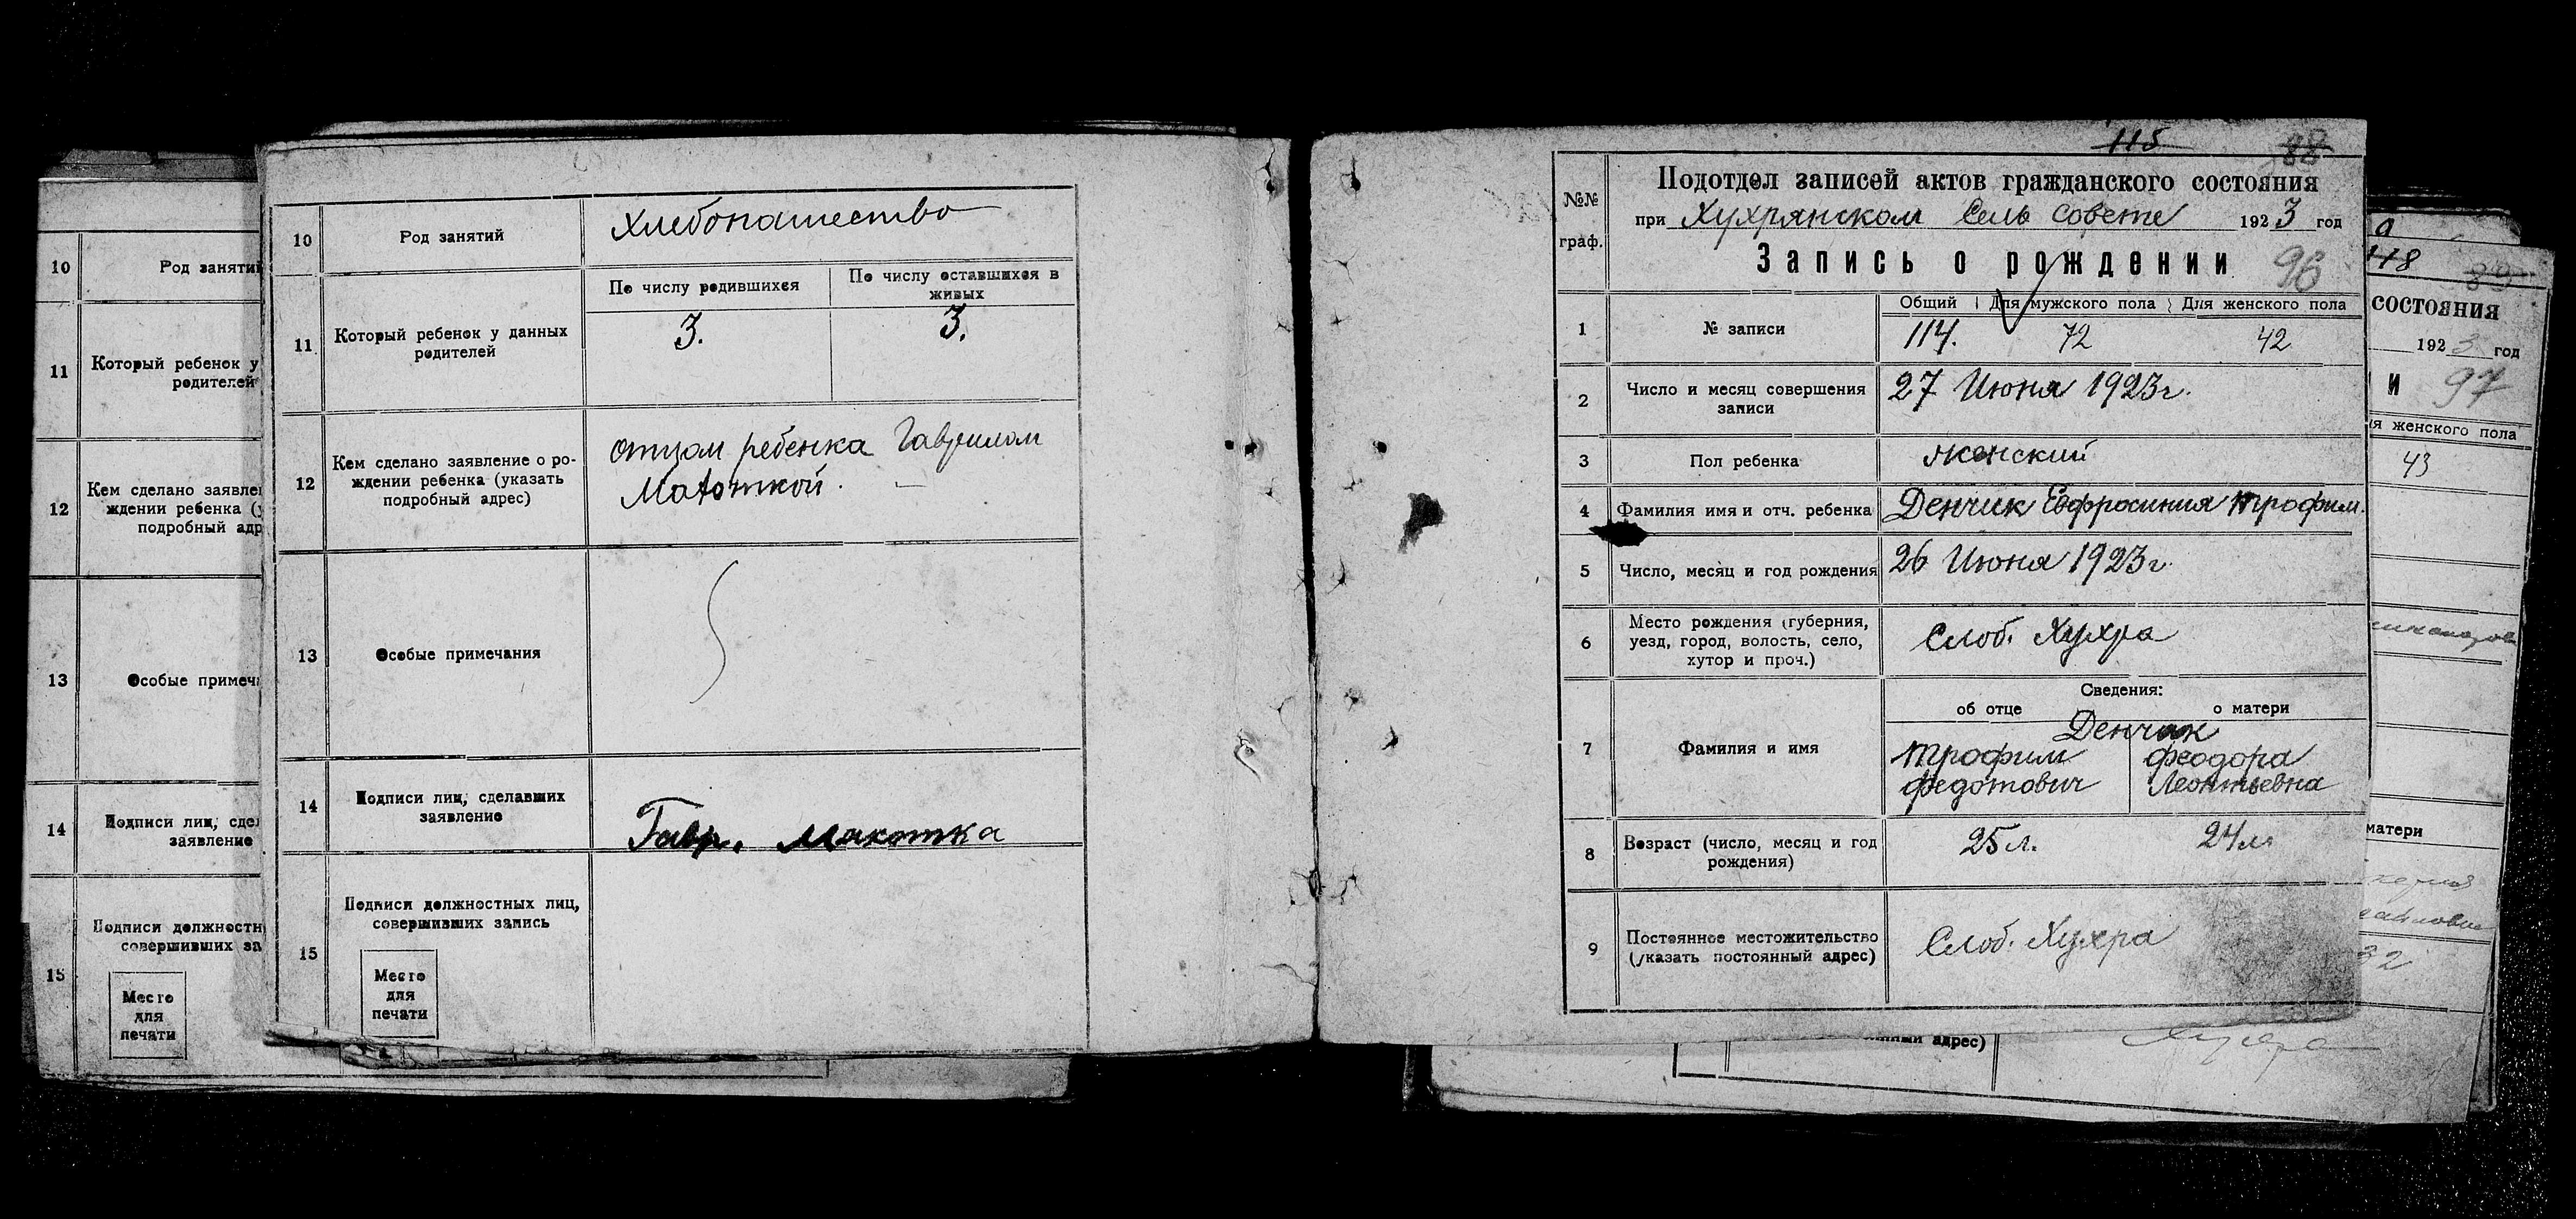 10
Род занятий
11
Который ребенок у
родителей
12
Кем сделано заявле
ждении ребенка (
подробный адр
13
Особые примеч
14
Подписи лиц, сде
заявление
15
Подписи должностн
совершивших за
Место
для
печати
10
Род занятий
Хлебопашество
11
Который ребенок у данных
родителей
По числу родившихся
По числу оставшихся в
живых
3.
3.
12
Кем сделано заявление о ро-
ждении ребенка (указать
подробный адрес)
отцом ребенка Гавриилом
Макоткой.
13
Особые примечания
14
Подписи лиц, сделавших
заявление
Гавр. Макотка
15
Подписи должностных лиц,
совершивших запись
Место
для
печати
115
88
№№
граф.
Подотдел записей актов гражданского состояния
при Хухрянском Сель Совете 1923 год
Запись о рождении 96
1
№ записи
Общий
Для мужского пола
Для женского пола
114.
72
42
2
Число и месяц совершения
записи
27 Июня 1923г.
3
Пол ребенка
женский
4
Фамилия имя и отч. ребенка
Денчик Евфросиния Трофим.
5
Число, месяц и год рождения
26 Июня 1923г.
6
Место рождения (губерния,
уезд, город, волость, село,
хутор и проч.)
Слоб. Хухра
7
Фамилия и имя
Сведения:
об отце
о матери
Денчик
Трофим
Федотович
Феодора
Леонтьевна
8
Возраст (число, месяц и год
рождения)
25 л.
24 л
9
Постоянное местожительство
(указать постоянный адрес)
Слоб. Хухра
118
89
состояния
1923 год
и 97
я женского пола
43
матери
32
адрес)
Хухра